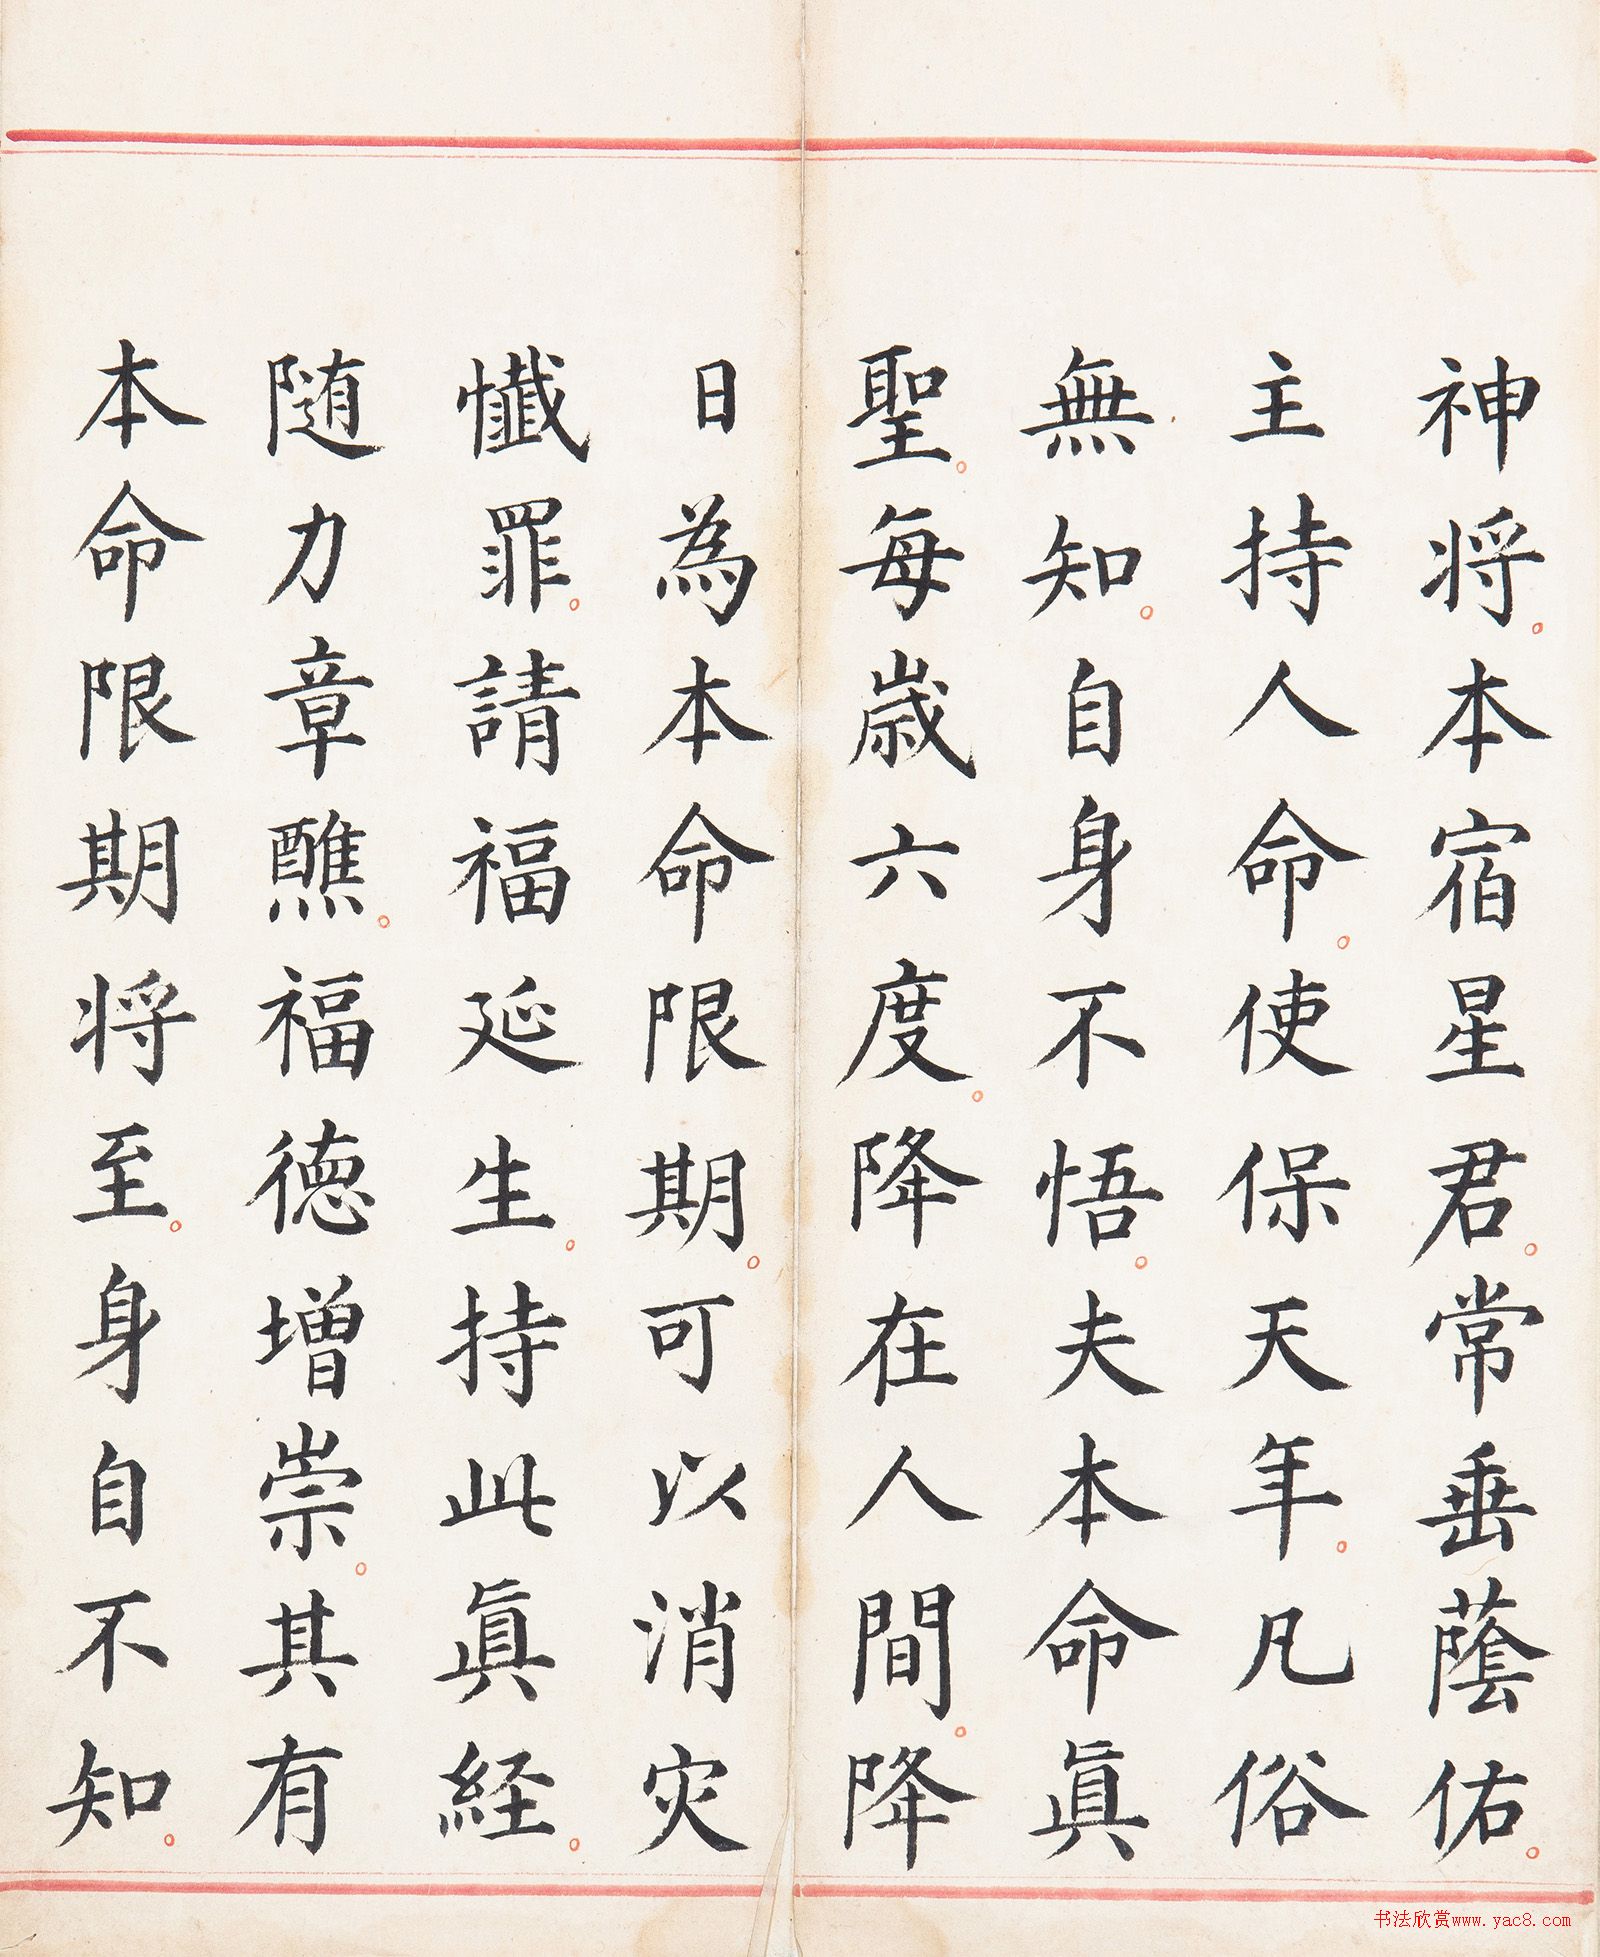 神将。本宿星君。常垂蔭佑。
主持人命。使保天年。凡俗
無知。自身不悟。夫本命眞
聖。每歳六度。降在人間。降
日為本命限期。可以消灾
懺罪。請福延生。持此眞経。
随力章醮。福徳増崇。其有
本命限期将至。身自不知。
书法欣赏www.yac8.com